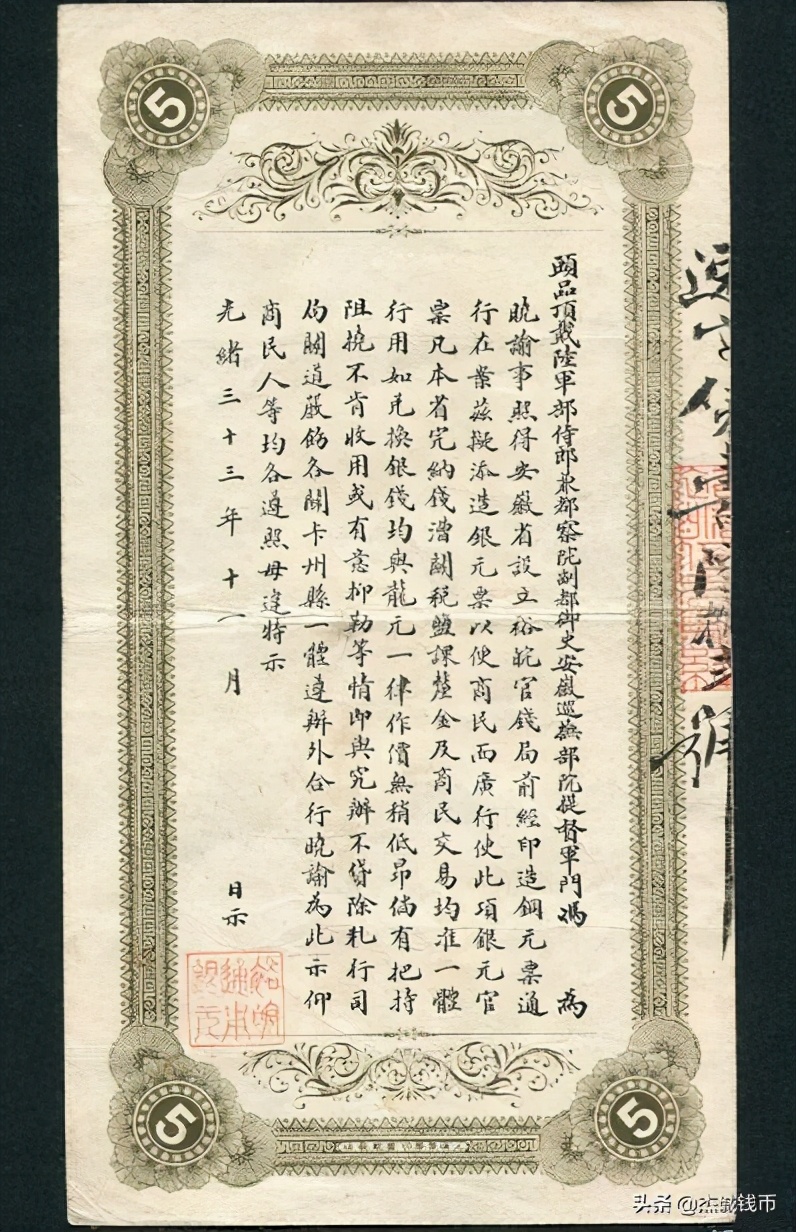 5
5
頭品頂戴陸軍部侍郎兼都察院副都御史安徽巡撫部院提督軍門馮 為
曉諭事照得安徽省設立裕皖官錢局前經印造銅元票通
行在案茲擬添造銀元票以便商民而廣行使此項銀元官
票凡本省完納錢漕關稅鹽課釐金及商民交易均准一體
行用如兌換銀錢均與龍元一律作價無稍低昂倘有把持
阻撓不肯收用或有意抑勒等情即與究辦不貸除札行司
局關道嚴飭各關卡州縣一體遵辦外合行曉諭為此示仰
商民人等均各遵照毋違特示
光緒三十三年十一月 日示
5
5
头条 @杰诚钱币